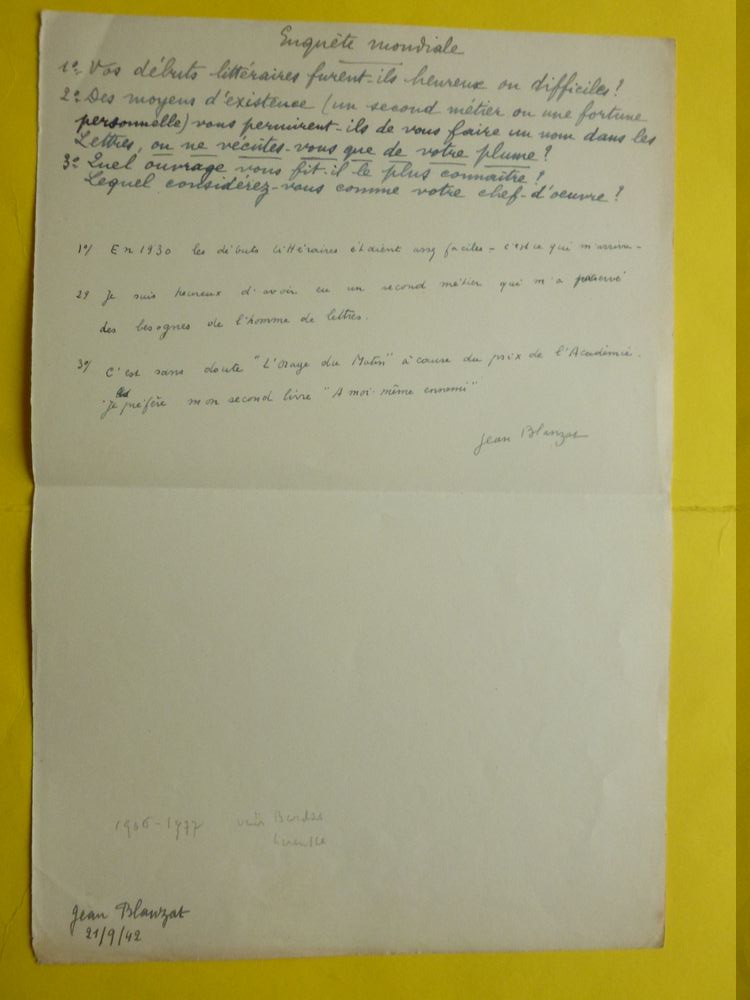 Enquête mondiale
1º- Vos débuts littéraires furent-ils heureux ou difficiles?
2º- Des moyens d'existence (un second métier ou une fortune
personnelle) vous permirent-ils de vous faire un nom dans les
Lettres, ou ne vécûtes-vous que de votre plume?
3º- Quel ouvrage vous fit-il le plus connaître?
Lequel considérez-vous comme votre chef-d'oeuvre?
1º/ En 1930 les débuts littéraires étaient assez faciles - c'est ce qui m'arriva -
2º/ Je suis heureux d'avoir eu un second métier qui m'a préservé
des besognes de l'homme de lettres.
3º/ C'est sans doute "L'Orage du Matin" à cause du prix de l'Académie.
Je préfère mon second livre "A moi-même ennemi"
Jean Blanzat
1906-1977 voir Bordas
Larousse
Jean Blanzat
21/9/42